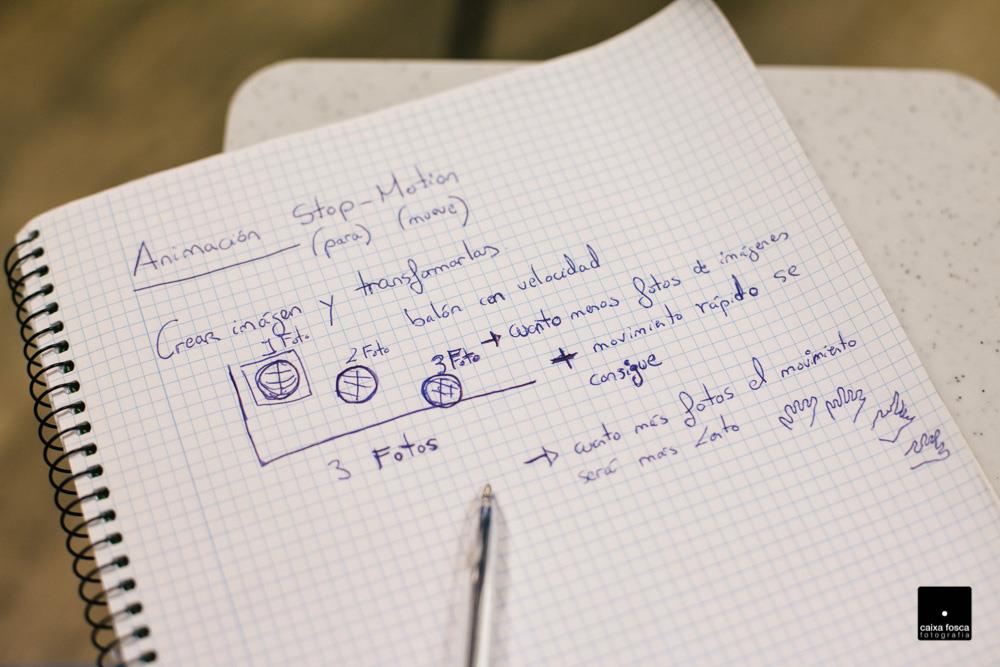 Stop-Motion
Animación (para) (mueve)
Crear imágen y transformarlas
balón con velocidad
1 Foto
2 Foto
3 Foto → cuanto menos fotos de imágenes
+ movimiento rápido se
consigue
3 Fotos
→ cuanto más fotos el movimiento
será más Lento
caixa fosca
fotografia